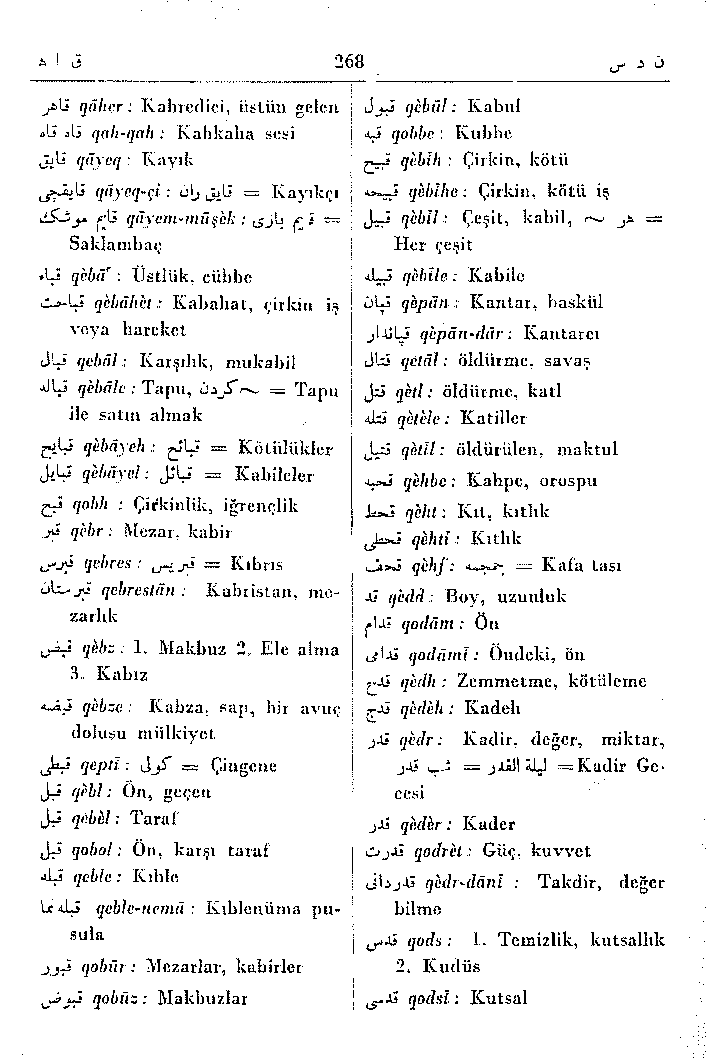 ق ا ه 268 ق د س
قاهر qāher: Kahredici, üstün gelen
قاه قاه qah-qah: Kahkaha sesi
قایق qāyeq: Kayık
قایقچی qāyeq-çi: قایق ران = Kayıkçı
قایم موشک qāyem-mūşèk: قایم بازی =
Saklambaç
قباء qèbā': Üstlük, cübbe
قباحت qèbāhèt: Kabahat, çirkin iş
veya hareket
قبال qebāl: Karşılık, mukabil
قباله qèbāle: Tapu, ~ کردن = Tapu
ile satın almak
قبایح qèbāyeh: قبائح = Kötülükler
قبایل qèbāyel: قبائل = Kabileler
قبح qobh: Çirkinlik, iğrençlik
قبر qèbr: Mezar, kabir
قبرس qebres: قبریس = Kıbrıs
قبرستان qebrestān: Kabristan, me-
zarlık
قبض qèbz: 1. Makbuz 2. Ele alma
3. Kabız
قبضه qèbze: Kabza, sap, bir avuç
dolusu mülkiyet
قبطی qeptī: کولی = Çingene
قبل qèbl: Ön, geçen
قبل qèbèl: Taraf
قبل qobol: Ön, karşı taraf
قبله qeble: Kıble
قبله نما qeble-nemā: Kıblenüma pu-
sula
قبور qobūr: Mezarlar, kabirler
قبوض qobūz: Makbuzlar
قبول qèbūl: Kabul
قبه qobbe: Kubbe
قبیح qèbīh: Çirkin, kötü
قبیحه qèbīhe: Çirkin, kötü iş
قبیل qèbīl: Çeşit, kabil, هر ~ =
Her çeşit
قبیله qèbīle: Kabile
قپان qèpān: Kantar, baskül
قپاندار qèpān-dār: Kantarcı
قتال qetāl: öldürme, savaş
قتل qètl: öldürme, katl
قتله qètèle: Katiller
قتیل qètīl: öldürülen, maktul
قحبه qèhbe: Kahpe, orospu
قحط qèht: Kıt, kıtlık
قحطی qèhtī: Kıtlık
قحف qèhf: جمجمه = Kafa tası
قد qèdd: Boy, uzunluk
قدام qodām: Ön
قدامی qodāmī: Öndeki, ön
قدح qèdh: Zemmetme, kötüleme
قدح qèdèh: Kadeh
قدر qèdr: Kadir, değer, miktar,
شب قدر = لیلة القدر = Kadir Ge-
cesi
قدر qèdèr: Kader
قدرت qodrèt: Güç, kuvvet
قدردانی qèdr-dānī: Takdir, değer
bilme
قدس qods: 1. Temizlik, kutsallık
2. Kudüs
قدسی qodsī: Kutsal